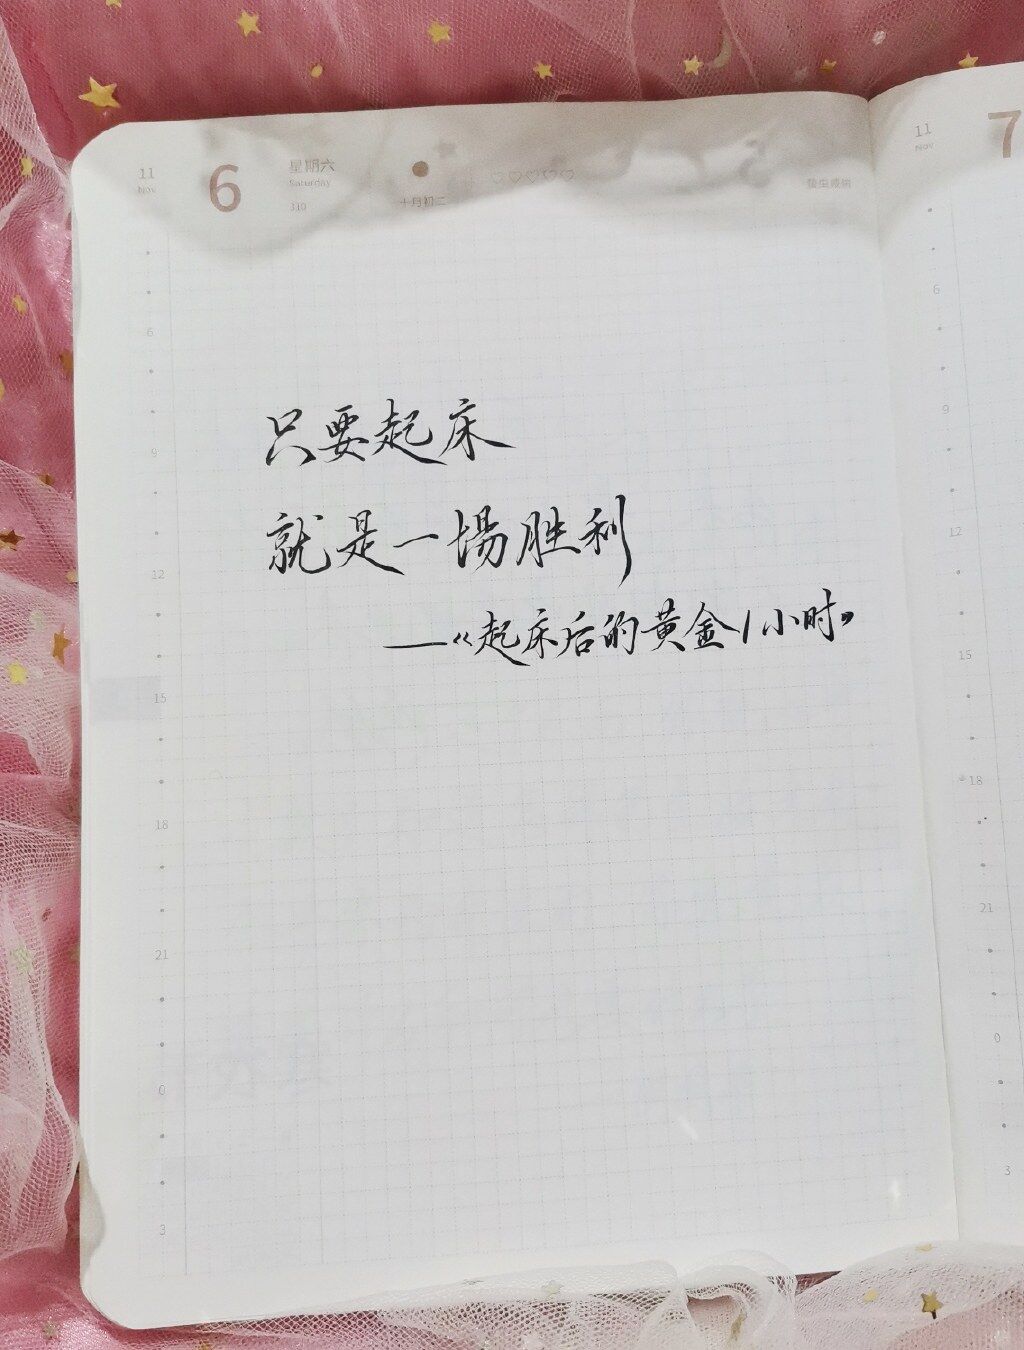 11
Nov
6
星期六
Saturday
310
十月初二
11
Nov
7
只要起床
就是一場胜利
——《起床后的黄金1小时》
6
9
12
15
18
21
0
3
6
9
12
15
18
21
0
3